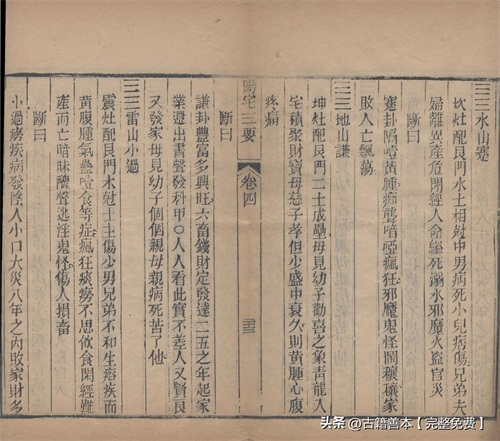 水山蹇
坎灶配艮門水土相尅中男病死小兒病傷兄弟夫
婦離異產危閉經人命經死溺水邪魔火盜官災
斷曰
蹇卦隔噎黃腫痴聾喑啞瘋狂邪魔鬼怪鬧穰穰家
敗人亡飄蕩
地山謙
坤灶配艮門二土成壘母見幼子勸喜之象青龍入
宅積聚財寶母慈子孝但少盛中衰久則黃腫心腹
疼痛
陽宅三要
卷四
斷曰
謙卦豐富多興旺六畜錢財定發達二五之年起家
業遊出書聲發科甲〇人人看此實不差人又賢良
又發家母見幼子個個親母親病死苦了他
雷山小過
震灶配艮門木尅土土傷少男兄弟不和生瘡疾而
黃腹腫氣蠱噎食等症瘋狂痰癆不思飲食閉經難
產而亡暗昧醜聲逃淫鬼怪傷人損畜
斷曰
小過癆疾病發陰人小口大災八年之內敗家財多
头条 @古籍善本【完整免费】